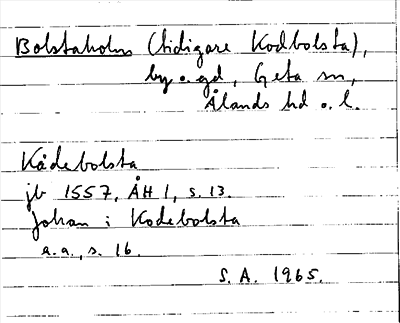 Bolstaholm (tidigare Kodbolsta),
by o. gd, Geta sn,
Ålands hd o. l.
Kådebolsta
jb 1557, ÅH 1, s. 13.
Johan i Kodebolsta
a.a., s. 16.
S. A. 1965.